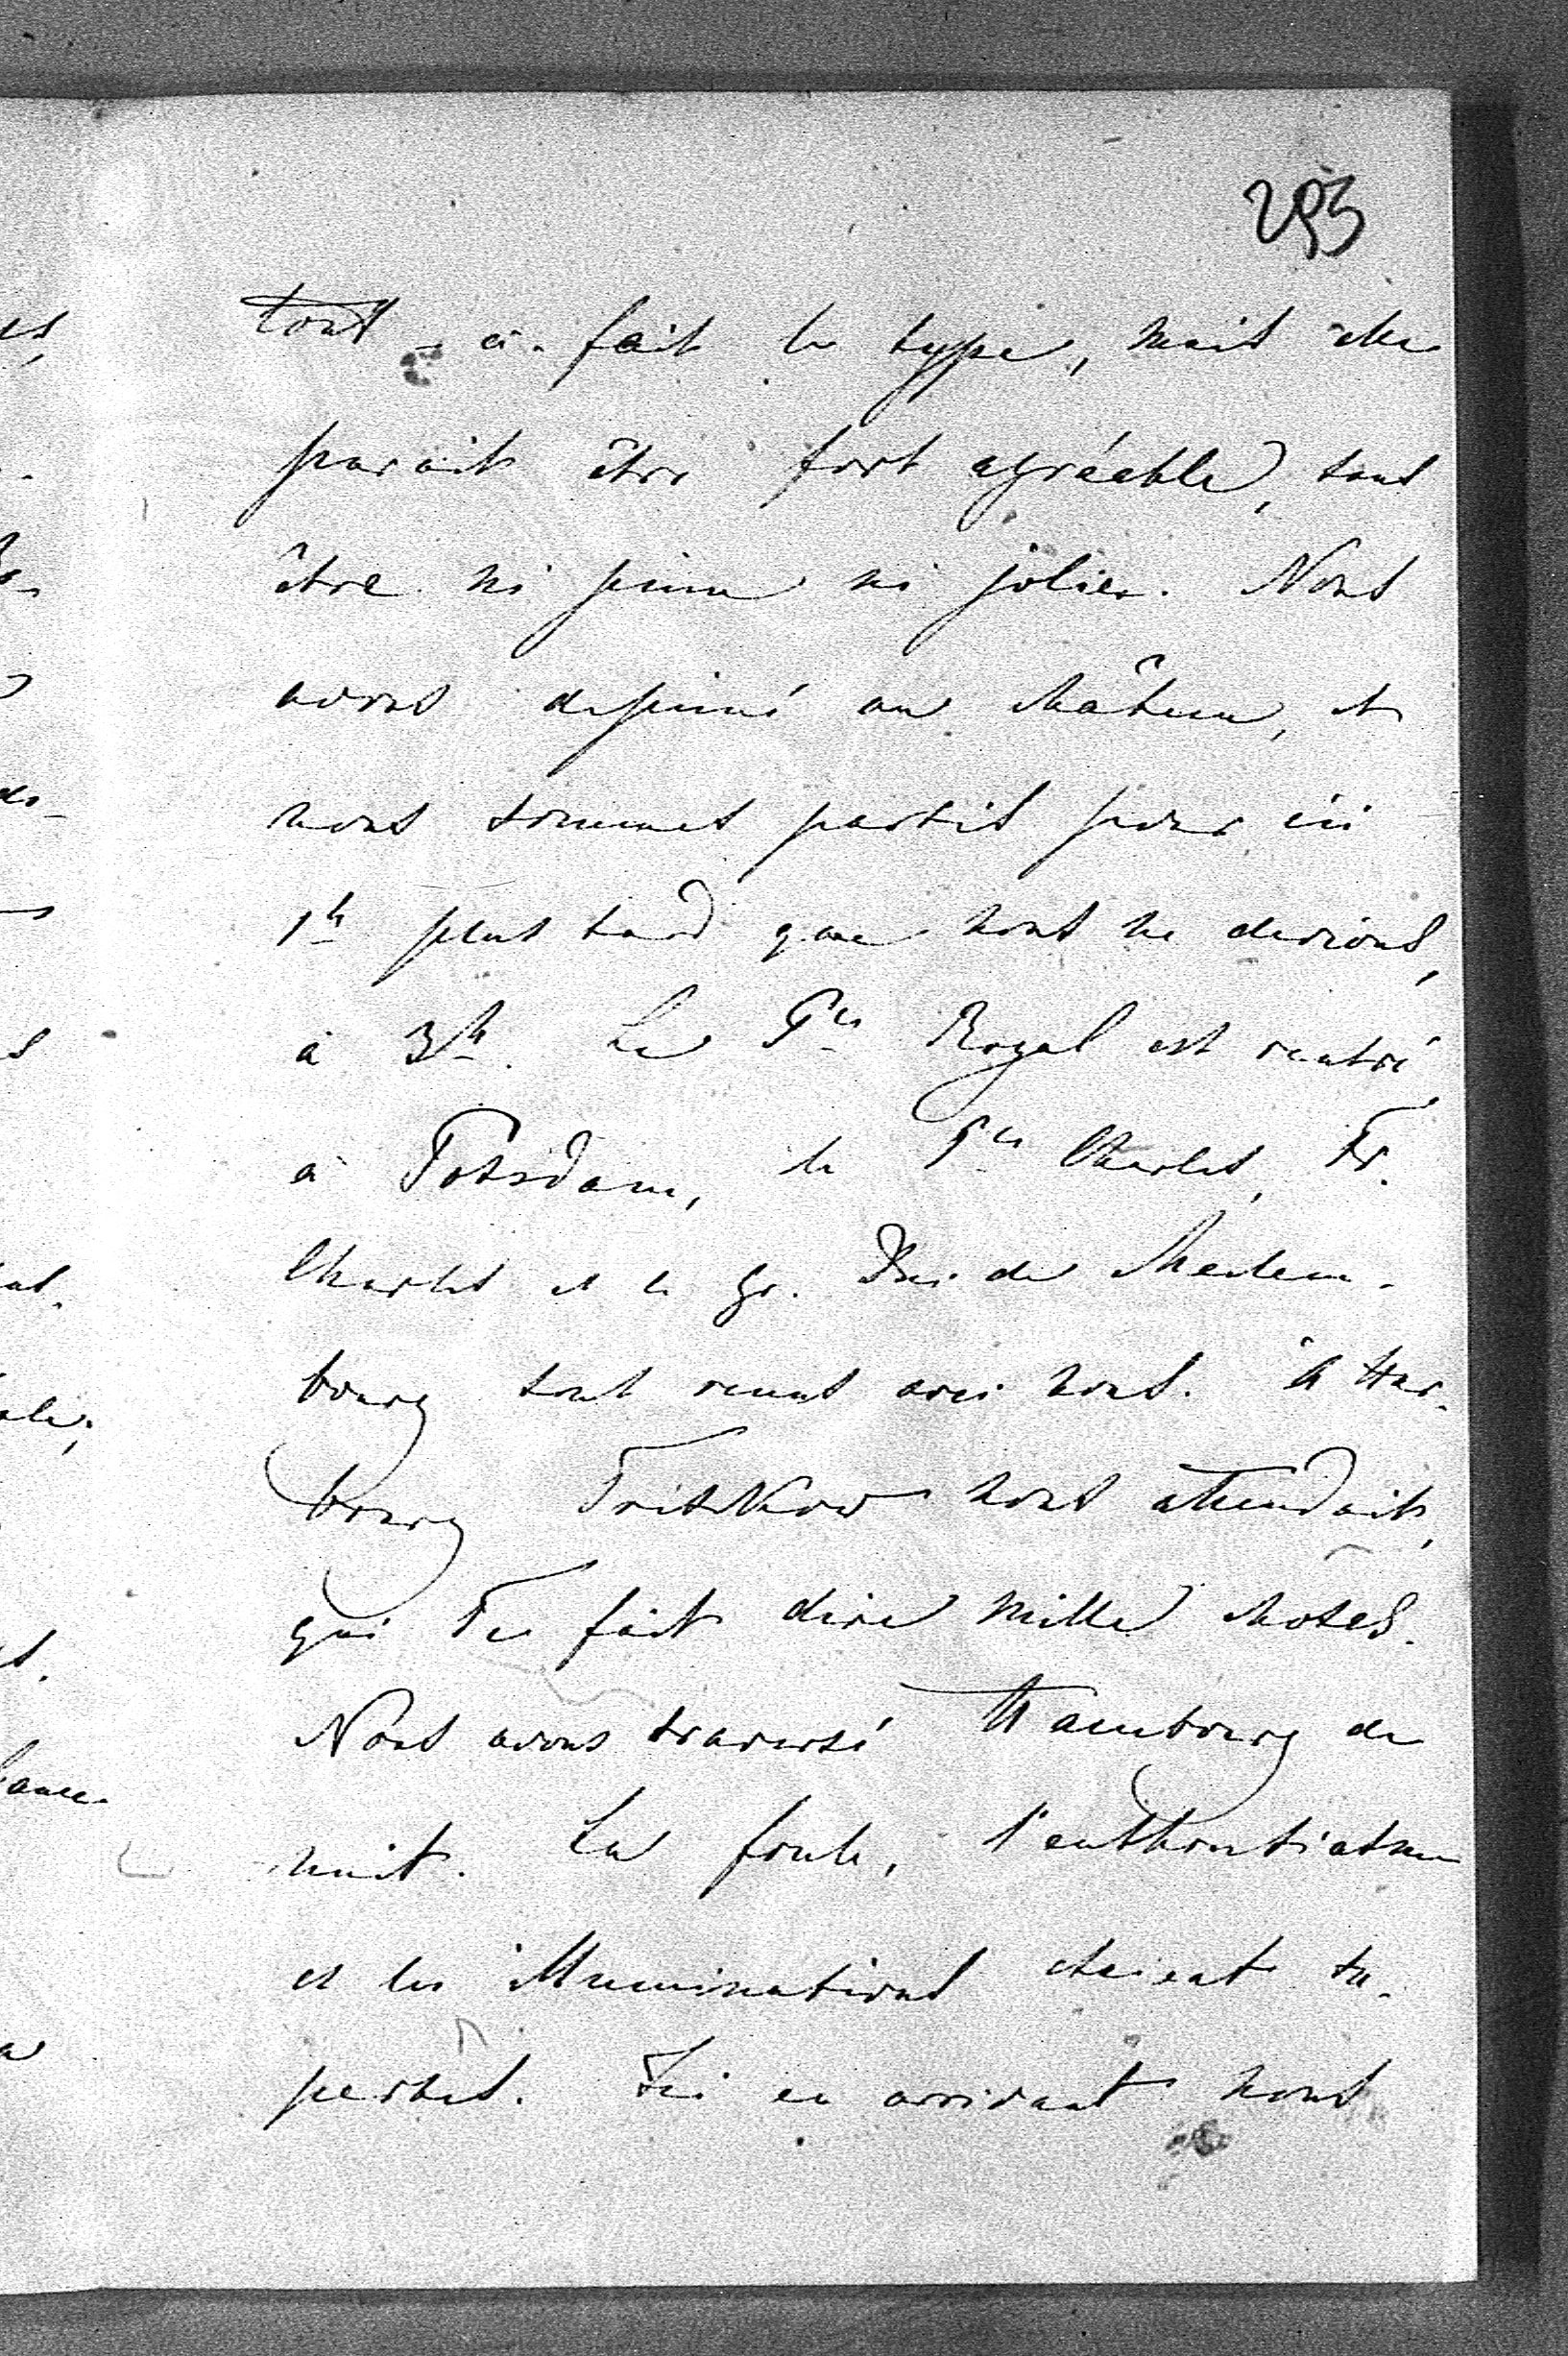 293
tout-à-fait le type, mais elle
parait être fort agréable, sans
être ni jeune ni jolie. Nous
avons dejeuné au château, et
nous sommes partis pour ici
1h plus tard que nous ne devions,
à 3h. Le Pce Royal est rentré
à Potsdam, le Pce Charles, Fr.
Charles et le Gr. Duc de Meclem-
bourg sont venus avec nous. à Har-
bourg Tritskow nous attendait,
qui Te fait dire mille choses.
Nous avons traversé Hambourg de
nuit. La foule, l'enthousiasme
et les illuminations étaient su-
perbes. Ici en arrivant nous